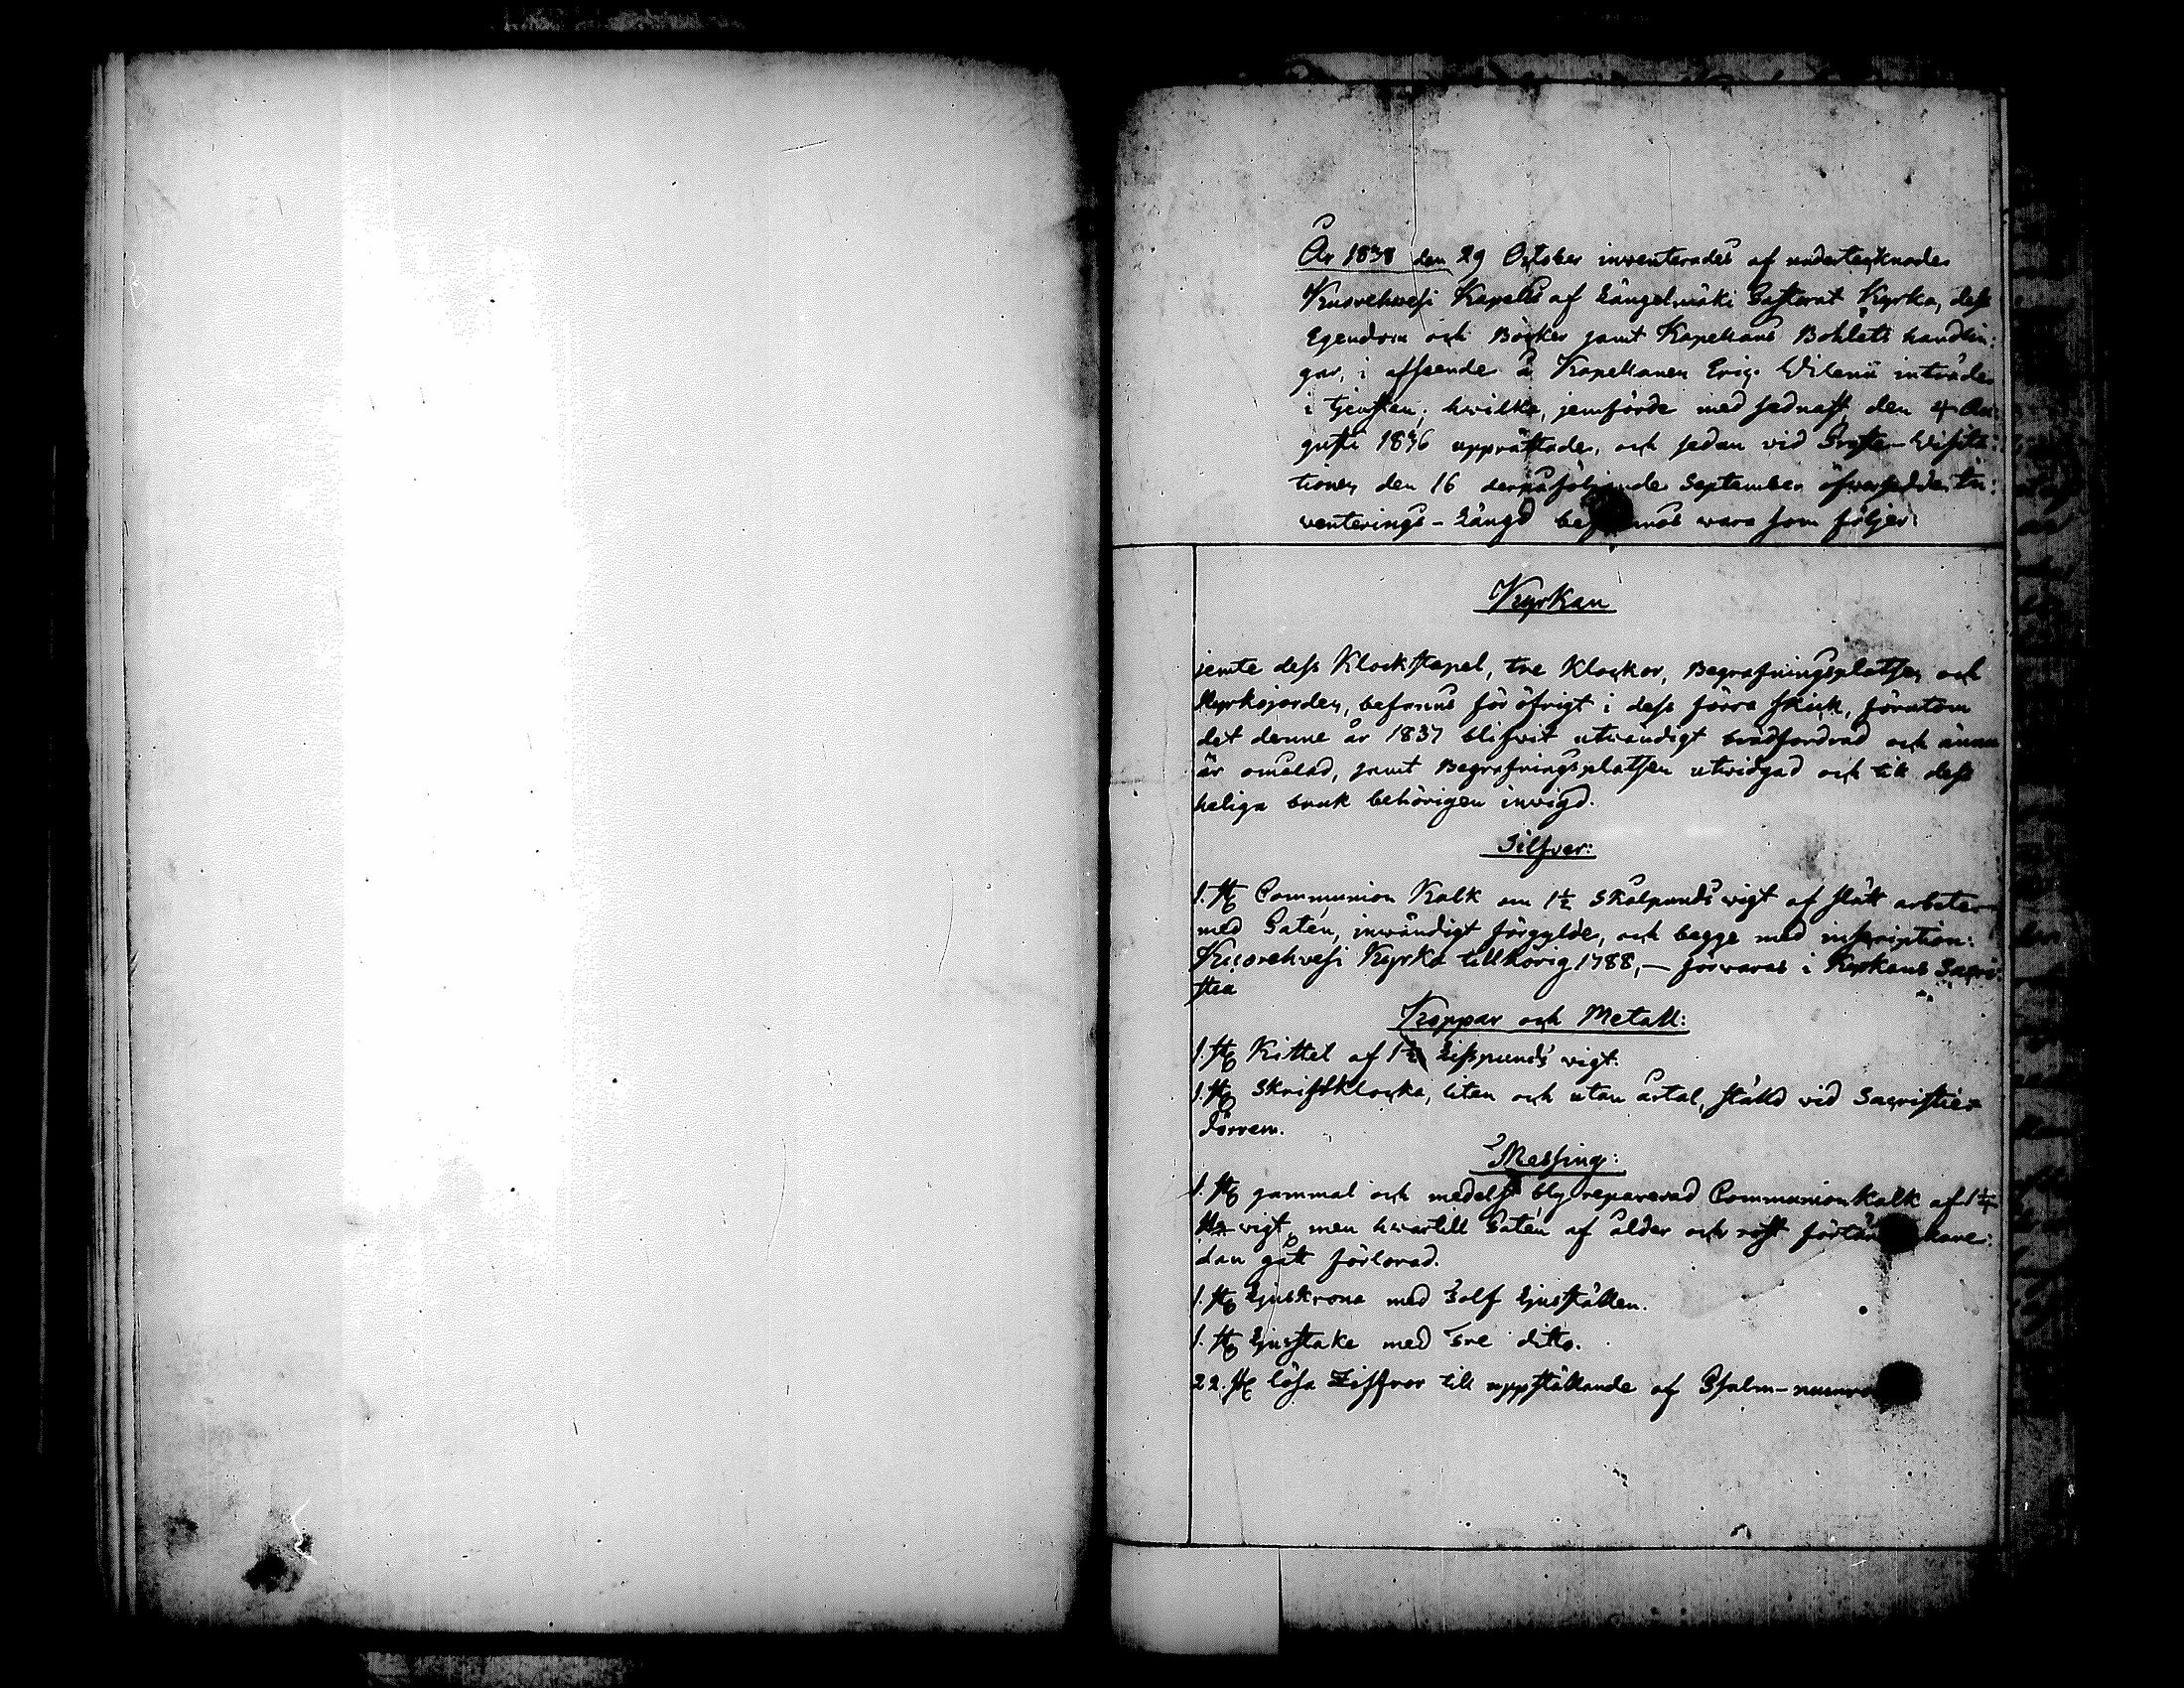 År 1838 den 29 October inventerades af undertecknade
Kuorehvesi Kapells af Längelmäki Pastorat Kyrka, dess
Egendom och Böcker samt Kapellans Bohlets handlin:
gar, i afseende å Kapellanen Eric Wilenii inträde
i tjensten; hvilka, jemförde med sednast den 4 Au:
gusti 1836 upprättade, och sedan vid Proste-Visita:
tionen den 16 derpåföljande September öfversedde In:
venterings-Längd befunnos vara som följer:
Kyrkan
jemte dess Klockstapel, tre Klockor, Begrafningsplatsen och
Kyrkojorden, befanns för öfrigt i dess förra skick, förutom
det denne år 1837 blifvit utvändigt brädfordrad och ännu
är omålad, samt Begrafningsplatsen utvidgad och till dess
heliga bruk behörigen invigd.
Silfver:
1. St Communion Kalk om 1½ Skålpunds vigt af slätt arbete
med Patén, invändigt förgylde, och begge med inscription:
Kuorehvesi Kyrka tillhörig 1788, — förvaras i Kyrkans Sacri:
stia
Koppar och Metall:
1. St Kittel af 1½ Lispunds vigt.
1. St Skriftklocka, liten och utan årtal, ställd vid Sacristie
Dörren.
Messing:
1. St gammal och medelst bly reparerad Communion Kalk af 1¼
vigt, men hvartill Patén af ålder och rost
dan gått förlorad.
1. St Ljuskrona med Tolf Ljusställen.
1. St Ljusstake med Tre ditto.
22. St lösa Ziffror till uppställande af Psalm-